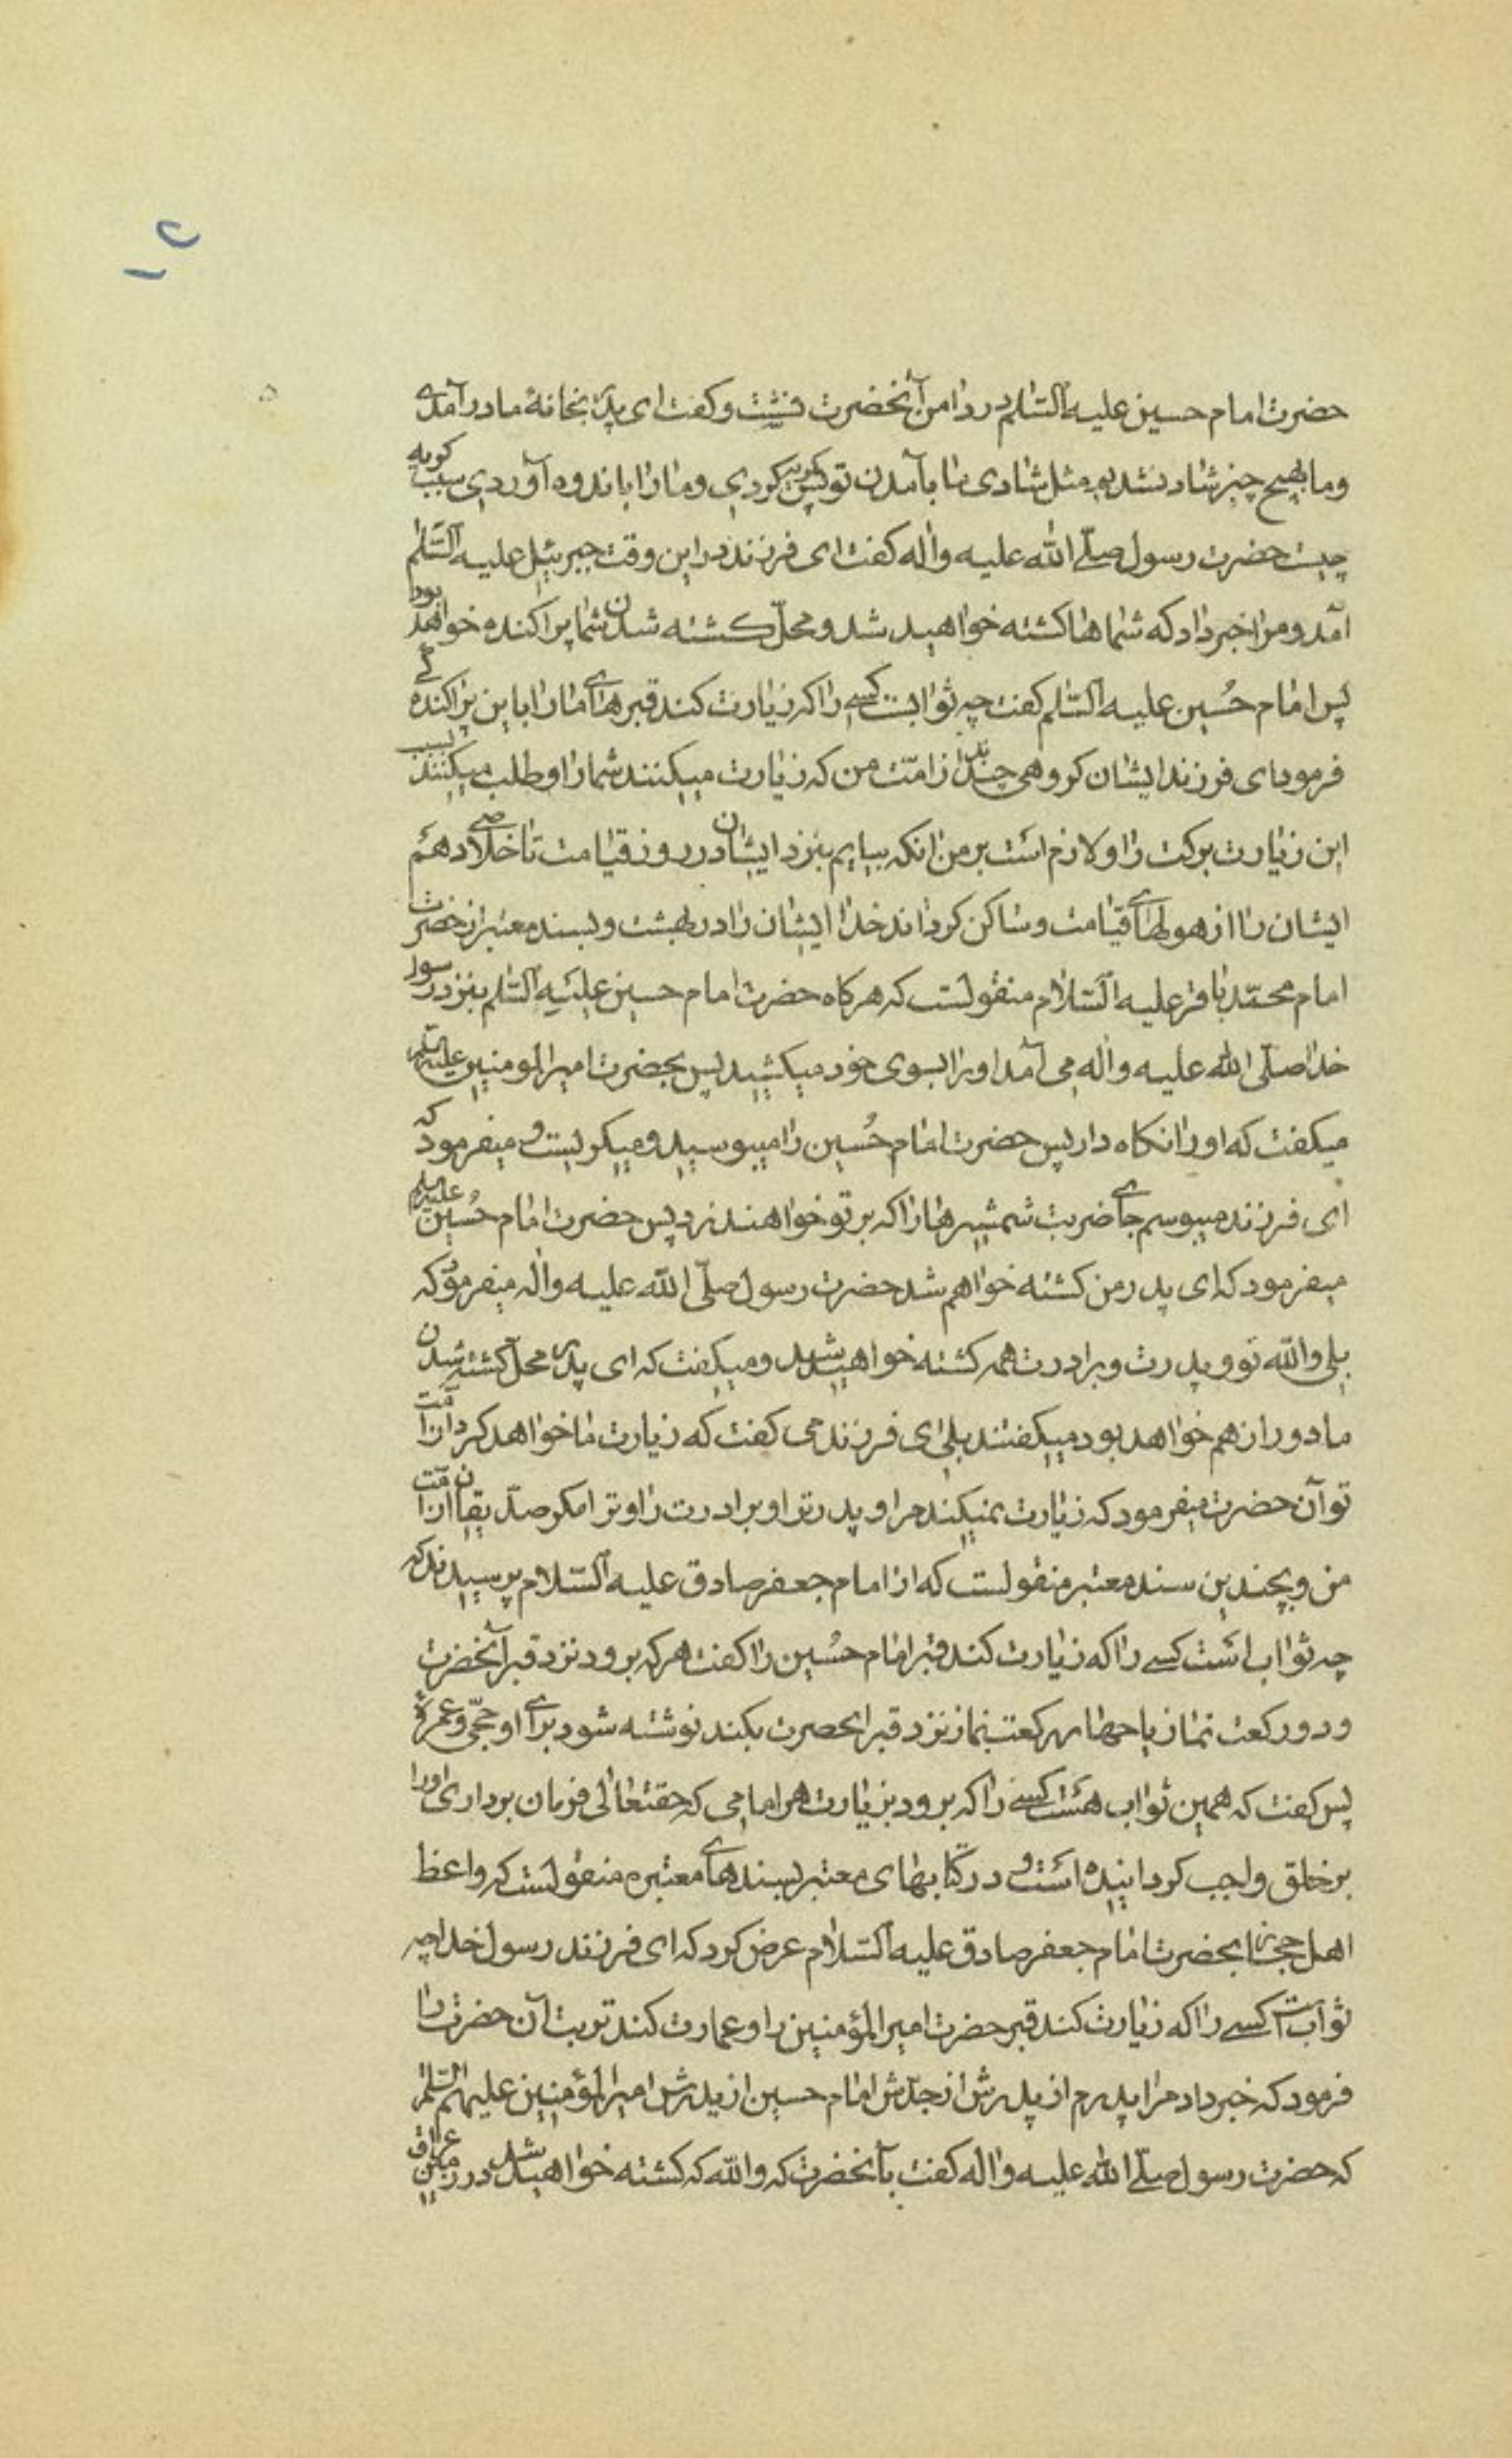 حضرت امام حسین علیه السّلم در دامن آنحضرت نشست و کفت ای پدر بخانهٔ ما در آمدی
و ما بهیچ چیز شاد نشدیم مثل شادی ما بآمدن تو پس کریه کردی و ما را باندوه آوردی سبب کریه
چیست حضرت رسول صلّی الله علیه و اٰله کفت ای فرزند در این وقت جبرئیل علیه السّلم
آمد و مرا خبر داد که شماها کشته خواهید شد و محلّ کشته شدن شما پراکنده خواهد بود
پس امام حُسین علیه السّلم کفت چه ثوابست کسی را که زیارت کند قبرهای ما را باین پراکنده کی
فرمود ای فرزند ایشان کروهی چندند از امّت من که زیارت میکنند شما را و طلب میکنند بسبب
این زیارت برکت را و لازم است بر من انکه بیایم بنزد ایشان در روز قیامت تا خلاصی دهم
ایشان را از هولهای قیامت و ساکن کرداند خدا ایشان را در بهشت و بسند معتبر از حضرت
امام محمّد باقر علیه السّلام منقولست که هرکاه حضرت امام حسین علیه السّلم بنزد رسول
خدا صلّی الله علیه و اٰله می آمد او را بسوی خود میکشید پس بحضرت امیر المومنین علیه السّلم
میکفت که او را نکاه دار پس حضرت امام حُسین را میبوسید و میکریست و میفرمود که
ای فرزند میبوسم جای ضربت شمشیرها را که بر تو خواهند زد پس حضرت امام حُسین علیه السلم
میفرمود که ای پدر من کشته خواهم شد حضرت رسول صلّی الله علیه و اٰله میفرمود که
بلی والله تو و پدرت و برادرت همه کشته خواهید شد و میکفت که ای پدر محلّ کشته شدن
ما دور از هم خواهد بود میکفتند بلی ای فرزند می کفت که زیارت ما خواهد کرد از امّت
تو آن حضرت میفرمود که زیارت نمیکند مرا و پدر ترا و برادرت را و ترا مکر صدّیقان از امّت
من و بچندین سند معتبر منقولست که از امام جعفر صادق علیه السّلام پرسیدند که
چه ثواب است کسی را که زیارت کند قبر امام حُسین را کفت هر که برود نزد قبر آنحضرت
و دو رکعت نماز یا چهار رکعت نماز نزد قبر انحضرت بکند نوشته شود برای او حجّی و عمرهٔ
پس کفت که همین ثواب هست کسی را که برود بزیارت هر امامی که حقتعالی فرمان برداری او را
بر خلق واجب کردانیده است و در کتابهای معتبر بسندهای معتبره منقولست که واعظ
اهل حجاز بحضرت امام جعفر صادق علیه السّلام عرض کرد که ای فرزند رسول خدا چه
ثوابست کسی را که زیارت کند قبر حضرت امیر المؤمنین را و عمارت کند تربت آن حضرت را
فرمود که خبر داد مرا پدرم از پدرش از جدّش امام حسین از پدرش امیر المؤمنین علیهم السّلم
که حضرت رسول صلّی الله علیه و اله کفت بآنحضرت که والله که کشته خواهید شد در زمین عراق